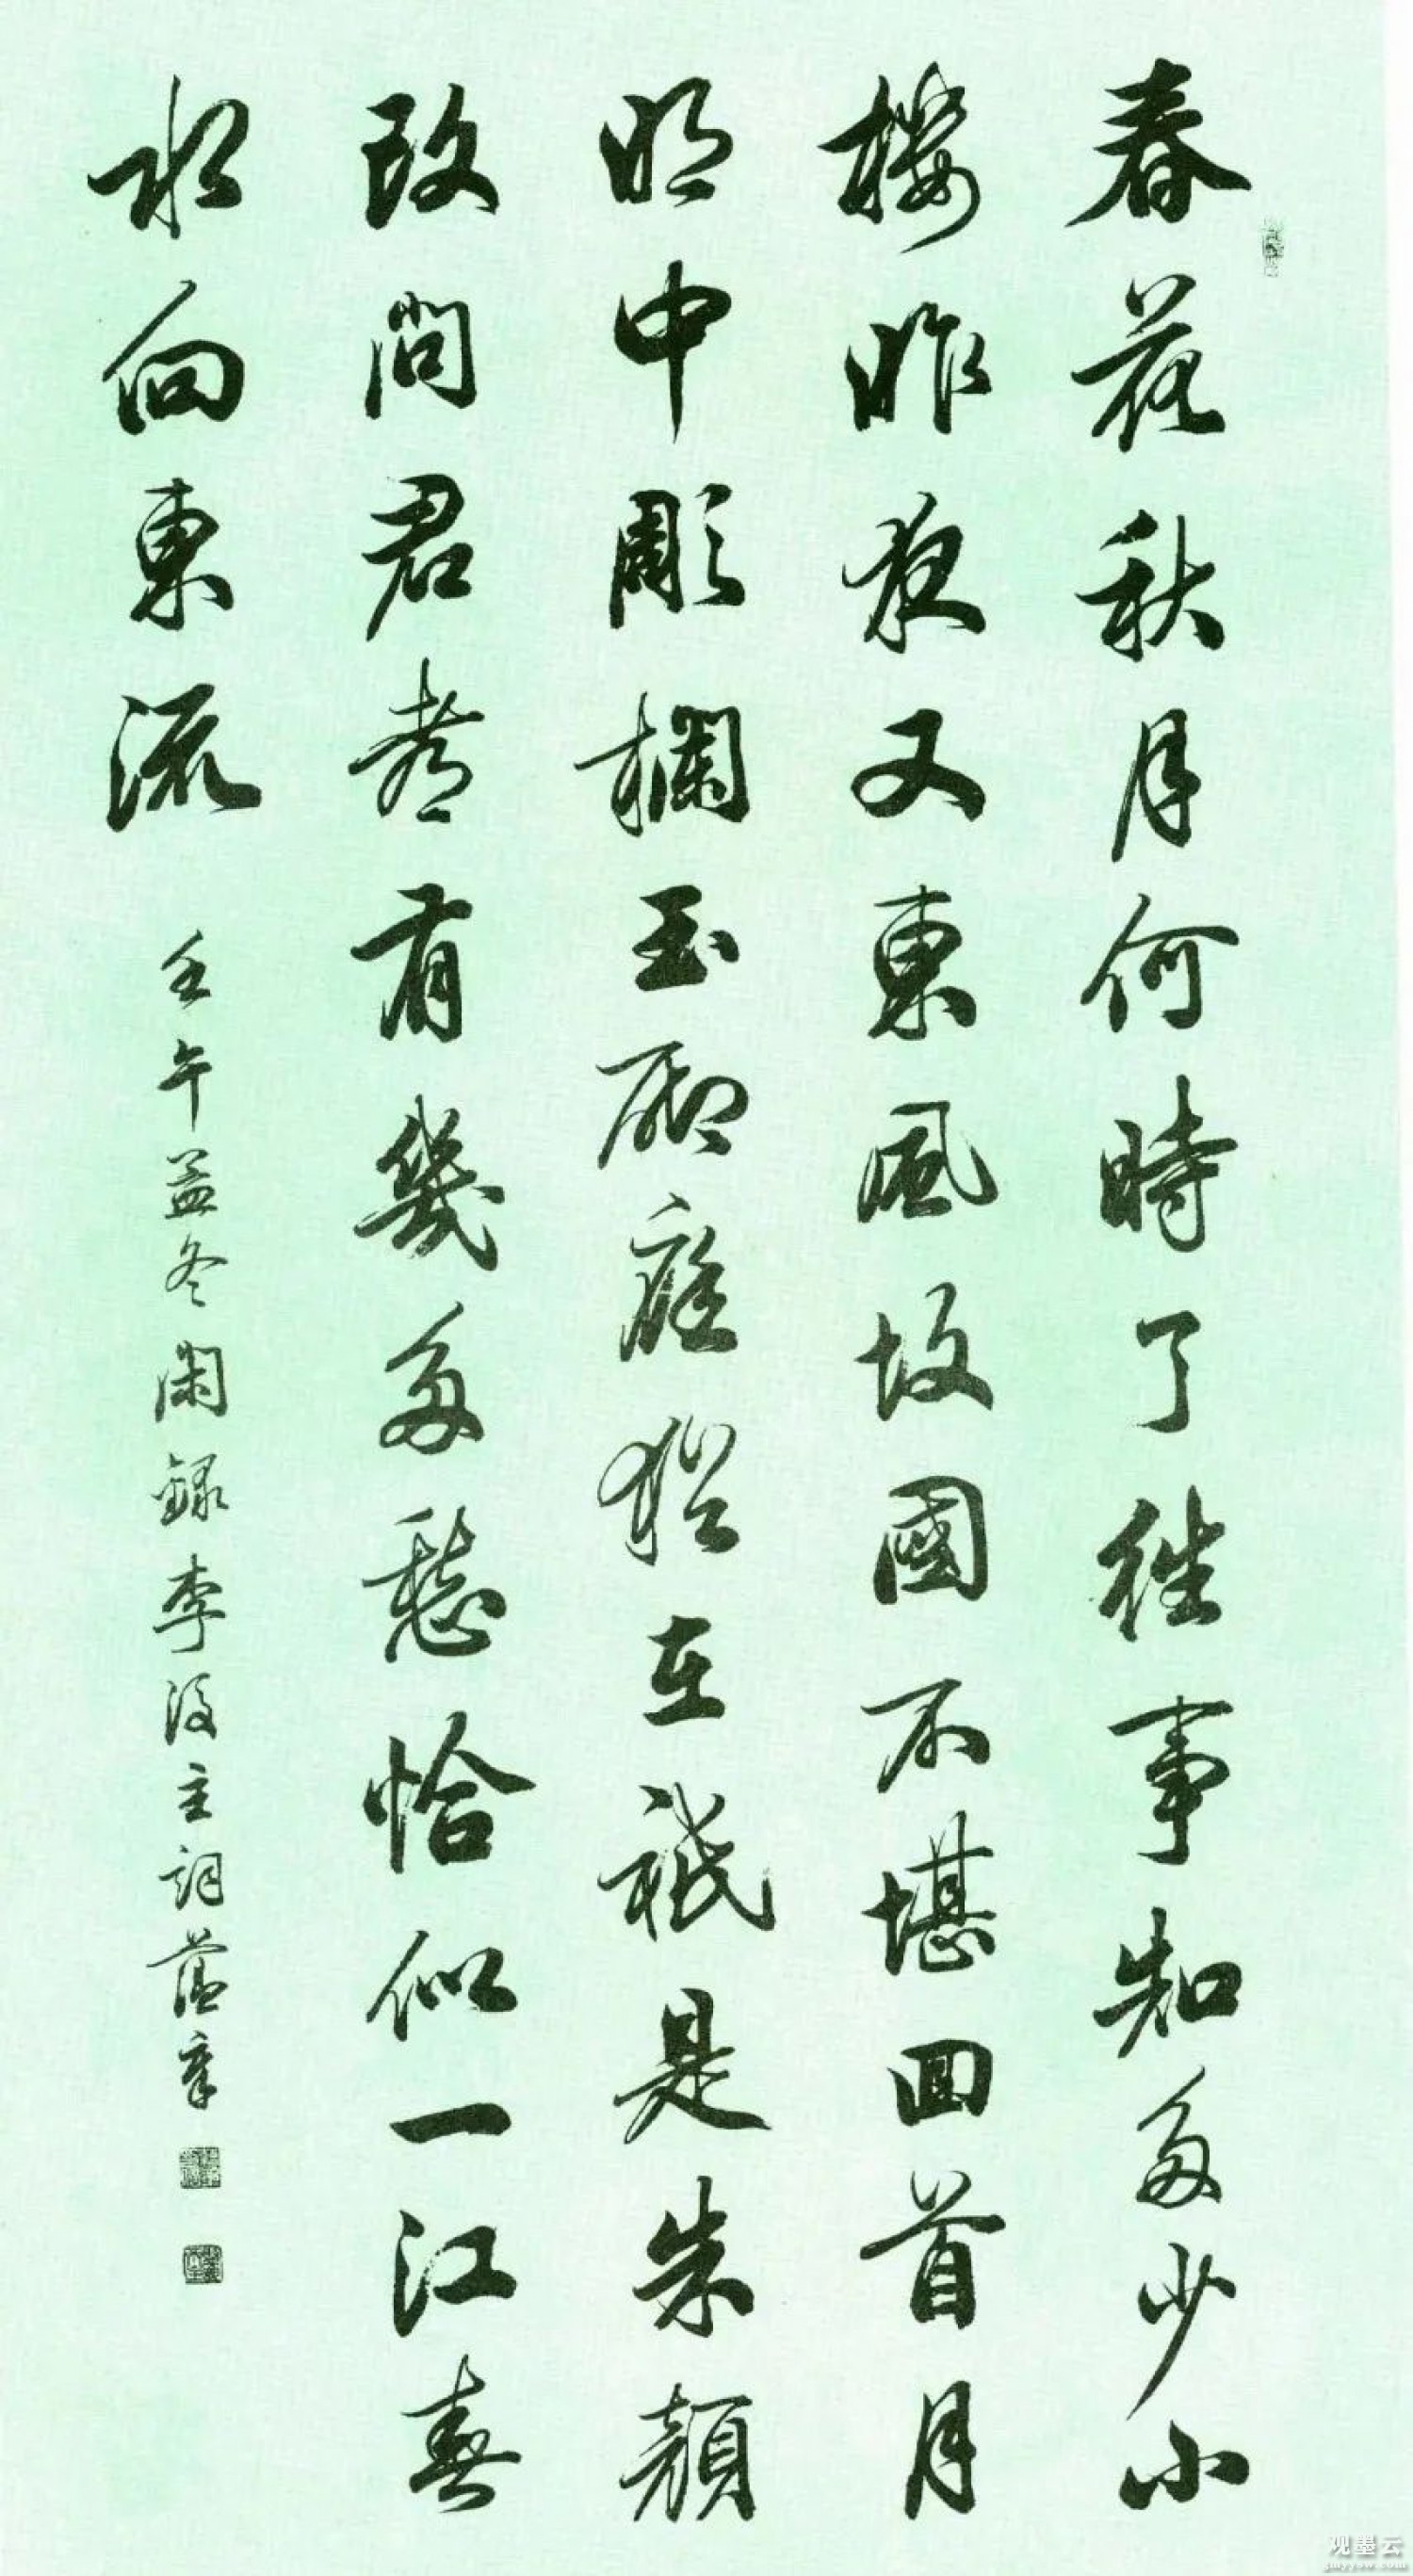 春花秋月何時了往事知多少小
樓昨夜又東風故國不堪回首月
明中彫欄玉砌應猶在祗是朱顏
改問君都有幾多愁恰似一江春
水向東流
壬午孟冬閑錄李後主詞蘊章
观墨云